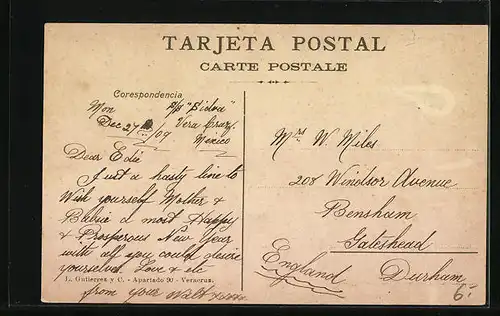 TARJETA POSTAL
CARTE POSTALE
Correspondencia
Mon
Dec 27th/09
Vera Cruz
Mexico
Dear Edie
Just a hasty line to
Wish yourself Mother &
a most Happy
& Prosperous New Year
with all you could desire
yourselves. Love & etc
L. Gutierrez y C. - Apartado 90 - Veracruz.
from your xxxx
Mrs W. Miles
208 Windsor Avenue
Bensham
Gateshead
England
Durham